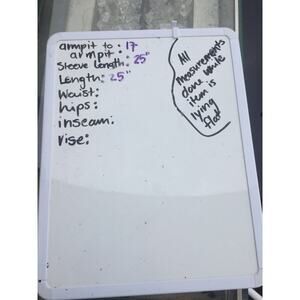 armpit to: 17
armpit:
Sleeve Length: 25"
Length: 25"
Waist:
hips:
inseam:
rise:
All
measurements
done while
item is
lying
flat